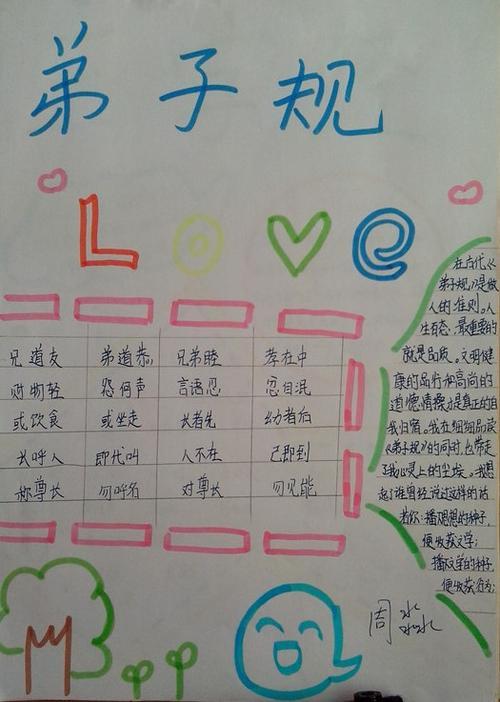 弟子规
Love
兄道友 弟道恭 兄弟睦 孝在中
财物轻 怨何声 言语忍 忿自泯
或饮食 或坐走 长者先 幼者后
长呼人 即代叫 人不在 己即到
称尊长 勿呼名 对尊长 勿见能
在古代《
弟子规》是做
人的准则。人
生百态,最重要的
就是品质。只有健
康的品行和高尚的
道德情操才是真正的自
我归宿。我在细细品读
《弟子规》的同时,也带走
了我心灵上的尘埃。我想
起了谁曾经说过这样的话
播思想的种子,
便收获文学;
播文学的种子
便收获行为;
周淼